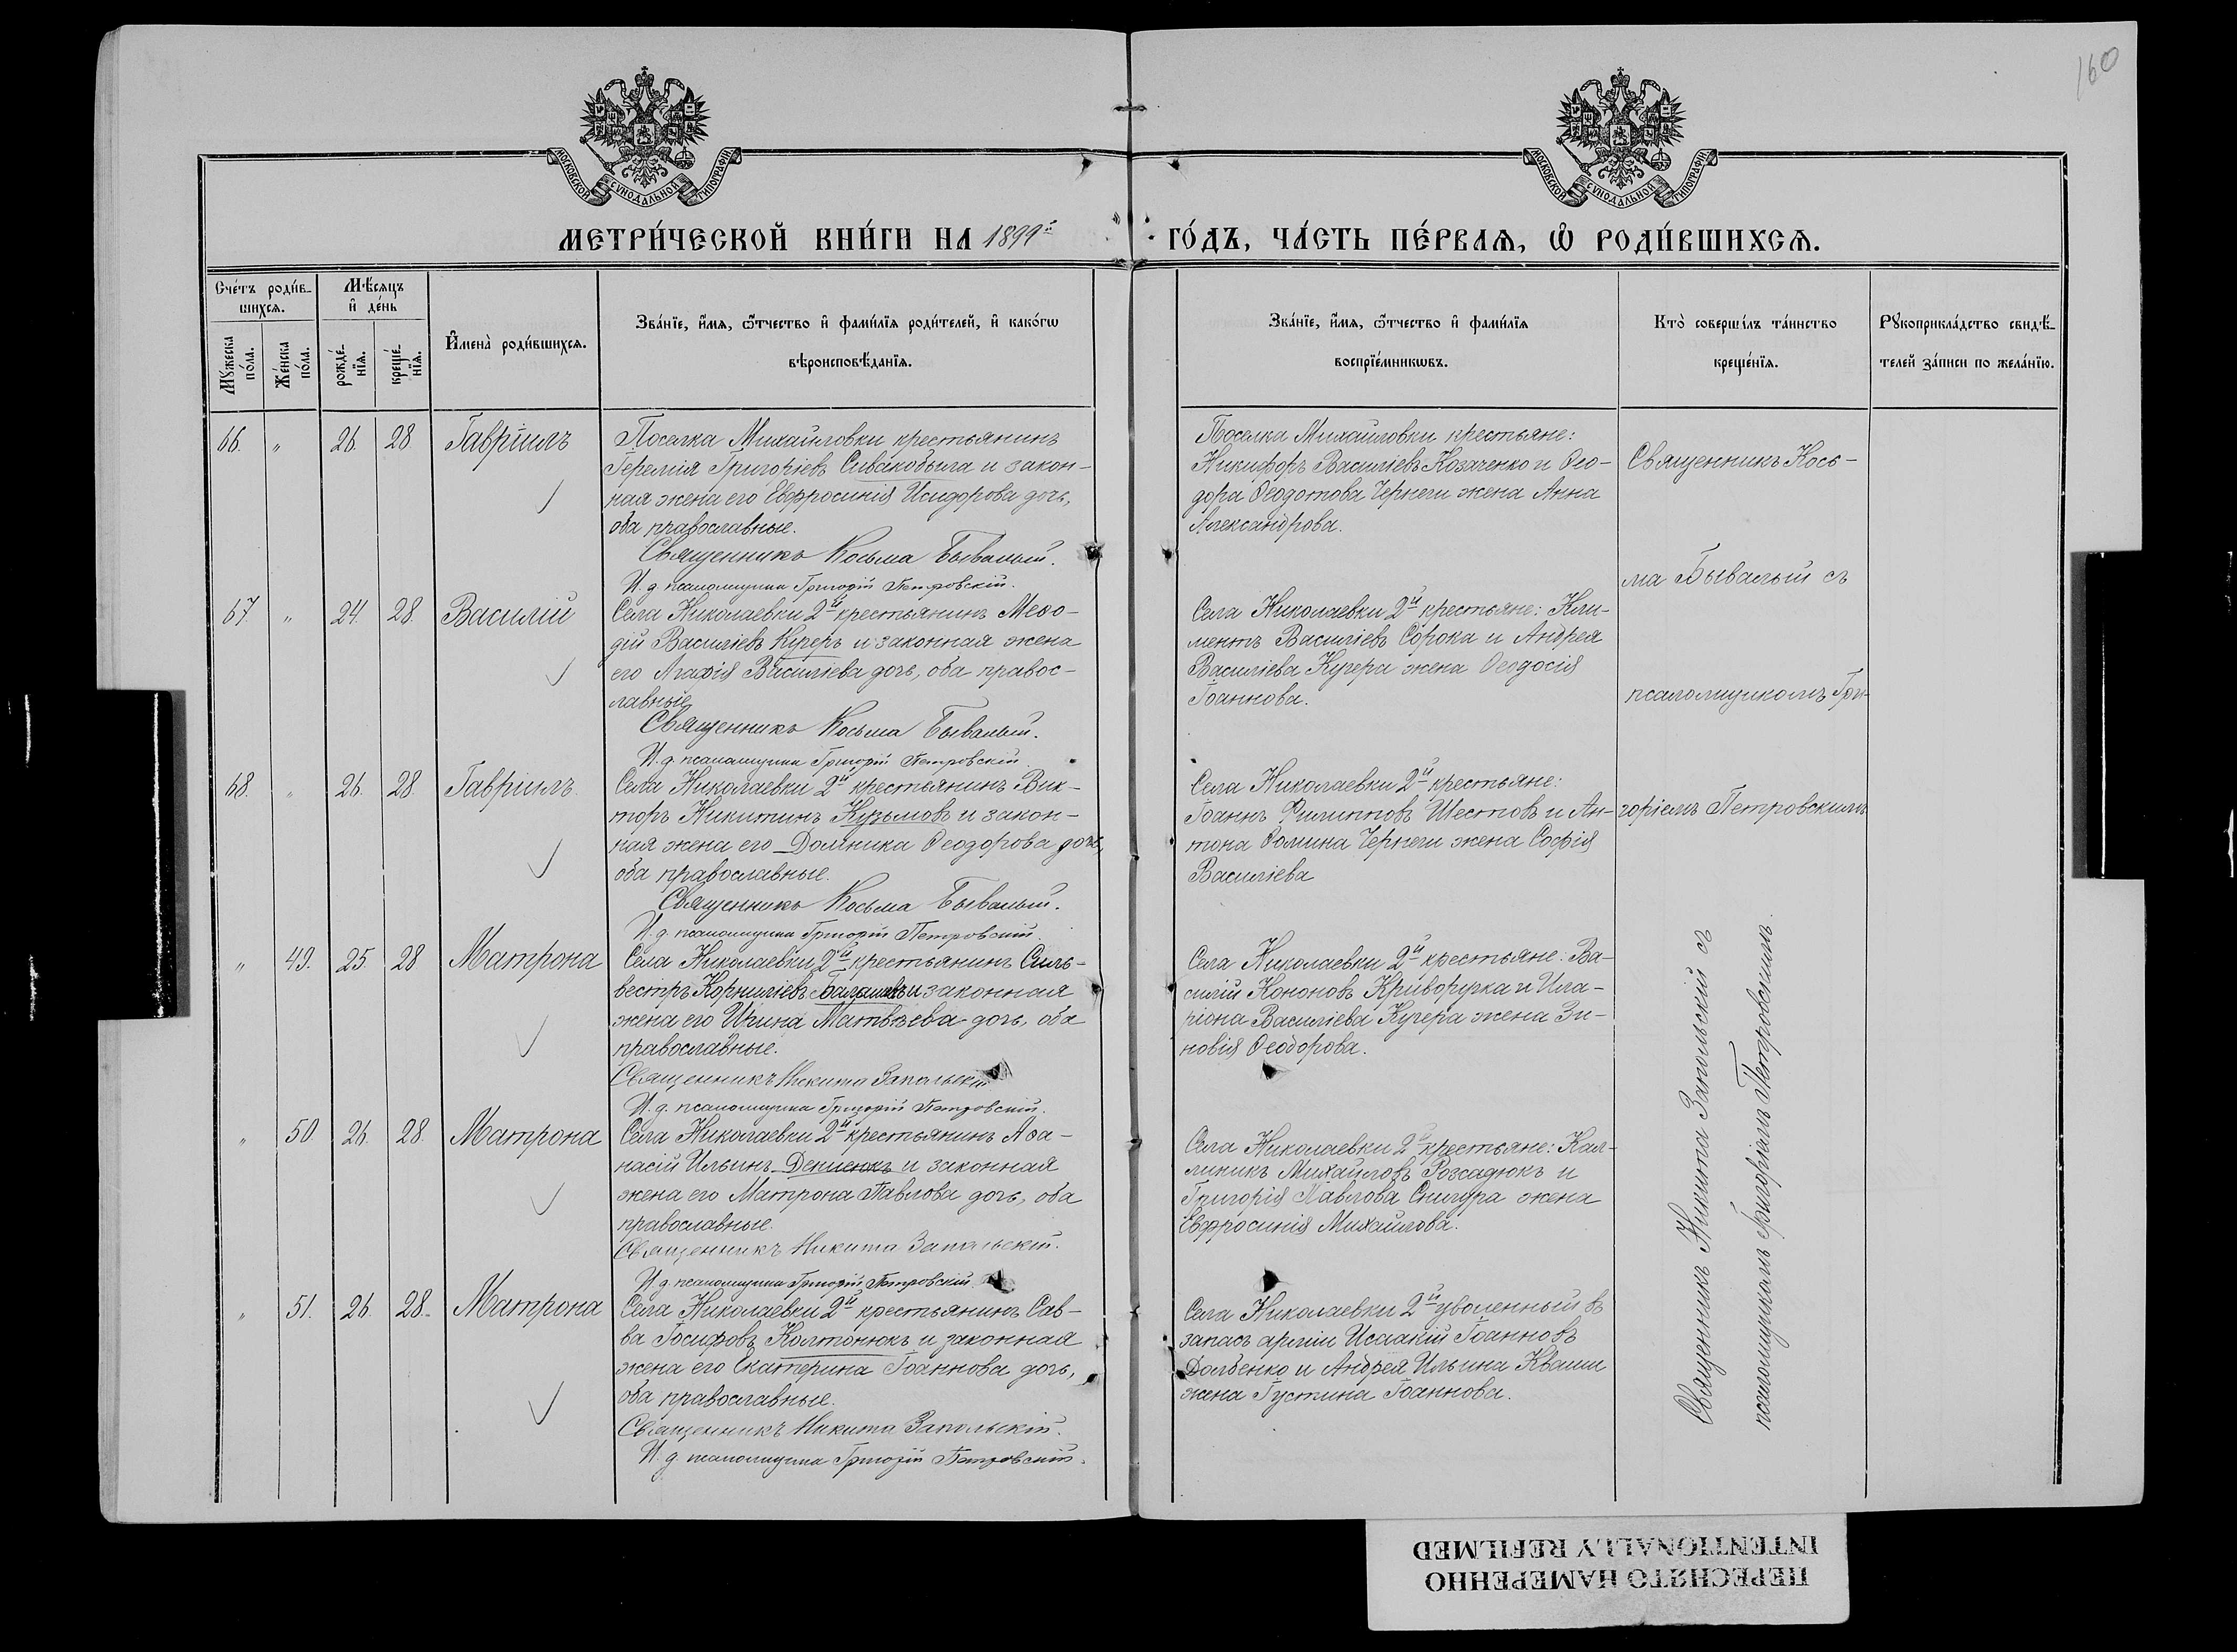 160
МОСКОВСКОЙ СѴНОДАЛЬНОЙ ТИПОГРАФІИ
МОСКОВСКОЙ СѴНОДАЛЬНОЙ ТИПОГРАФІИ
МЕТРИ́ЧЕСКОЙ КНИ́ГИ НА 1899й ГО́ДЪ, ЧА́СТЬ ПЕ́РВАЯ, Ѡ РОДИ́ВШИХСЯ.
Сче́тъ роди́в-
шихся.
Мꙋжеска
по́ла.
Же́нска
по́ла.
Мѣ́сяцъ
и҆ де́нь
рожде́-
нїя.
креще́-
нїя.
И҆мена̀ роди́вшихся.
Зва́нїе, и҆́мя, ѻ҆́тчество и҆ фами́лїя роди́телей, и҆ како́гѡ
вѣроисповѣ́данїя.
Зва́нїе, и҆́мя, ѻ҆́тчество и҆ фами́лїя
воспрїе́мникѡвъ.
Кто̀ соверши́лъ та́инство
креще́нїя.
Рꙋкоприкла́дство свидѣ́-
телей за́писи по жела́нїю.
66. " 26. 28 Гавріилъ
Поселка Михайловки крестьянинъ
Іеремія Григоріевъ Сивакобыла и закон-
ная жена его Евфросинія Исидорова дочь,
оба православные.
Священникъ Косьма Бывалый.
И. д. псаломщика Григорій Петровскій.
Поселка Михайловки крестьяне:
Никифоръ Василіевъ Козаченко и Ѳео-
дора Ѳеодотова Чернеги жена Анна
Александрова.
67. " 24. 28. Василій
Села Николаевки 2й крестьянинъ Меѳо-
дій Василіевъ Кучеръ и законная жена
его Агафія Василіева дочь, оба правос-
лавные
Священникъ Косьма Бывалый.
И. д. псаломщика Григорій Петровскій.
Села Николаевки 2й крестьяне: Кли-
ментъ Василіевъ Сорока и Андрея
Василіева Кучера жена Ѳеодосія
Іоаннова.
68. " 26. 28. Гавріилъ.
Села Николаевки 2й крестьянинъ Вик-
торъ Никитинъ Кузьмовъ и закон-
ная жена его Домника Ѳеодорова дочь,
оба православные.
Священникъ Косьма Бывалый.
И. д. псаломщика Григорій Петровскій
Села Николаевки 2й крестьяне:
Іоаннъ Филипповъ Шестовъ и Ан-
тона Ѳомина Чернеги жена Софія
Василіева
Священникъ Кось-
ма Бывалый съ
псаломщикомъ Гри-
горіемъ Петровскимъ
" 49. 25. 28 Матрона
Села Николаевки 2й крестьянинъ Силь-
вестръ Корниліевъ и законная
жена его Ирина Матвѣева дочь, оба
православные.
Священникъ Никита Запольскій
И. д. псаломщика Григорій Петровскій.
Села Николаевки 2й крестьяне: Ва-
силій Кононовъ Криворучка и Ила-
ріона Василіева Кучера жена Зи-
новія Ѳеодорова.
" 50 26. 28. Матрона
Села Николаевки 2й крестьянинъ Аѳа-
насій Ильинъ и законная
жена его Матрона Павлова дочь, оба
православные.
Священникъ Никита Запольскій.
И. д. псаломщика Григорій Петровскій.
Села Николаевки 2й крестьяне: Кал-
линикъ Михайловъ Розсадюкъ и
Григорія Павлова Снигура жена
Евфросинія Михайлова.
" 51. 26. 28. Матрона
Села Николаевки 2й крестьянинъ Сав-
ва Іосифовъ Колтонюкъ и законная
жена его Екатерина Іоаннова дочь,
оба православные.
Священникъ Никита Запольскій.
И. д. псаломщика Григорій Петровскій.
Села Николаевки 2й уволенный въ
запасъ арміи Исаакій Іоанновъ
Долбенко и Андрея Ильина Кваши
жена Іустина Іоаннова.
Священникъ Никита Запольскій съ
псаломщикомъ Григоріемъ Петровскимъ.
ПЕРЕСНЯТО НАМЕРЕННО
INTENTIONALLY REFILMED